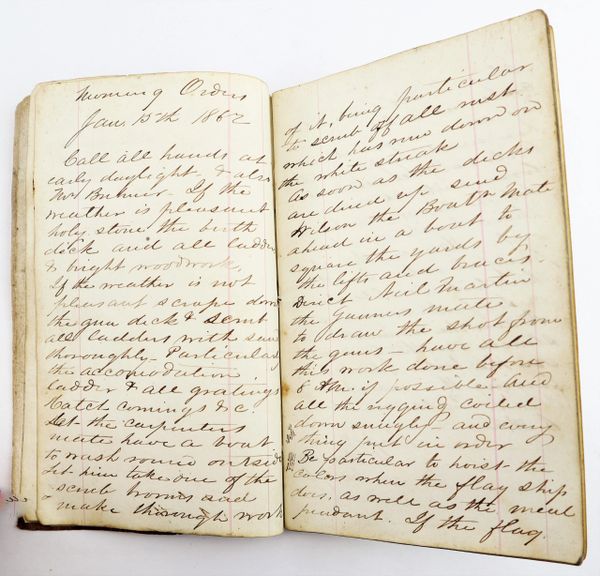 Morning Orders
Jan. 15th 1862
Call all hands at
early daylight - & also
Mr If the
weather is pleasant
holy stone the birth
deck and all ladders
& bright woodwork.
If the weather is not
pleasant scrape down
the gun deck & scrub
all ladders with sand
thoroughly - Particularly
the accomodation
ladder & all gratings
Hatch comings & c
Let the carpenters
mate have a boat
to wash round outside
Let him take one of the
scrub brooms and
make thorough work
of it, being particular
to scrub off all rust
which has run down on
the white streak
As soon as the decks
are dried up send
Wilson the Boat's Mate
ahead in a boat to
square the yards by
the lifts and braces.
Direct Neil Martin
the Gunners mate
to draw the shot from
the guns - have all
this work done before
8 if possible. And
all the rigging coiled
down snugly - and every
thing put in order
Be particular to hoist the
colors when the flag ship
does, as well as the meal
pendant. If the flag.